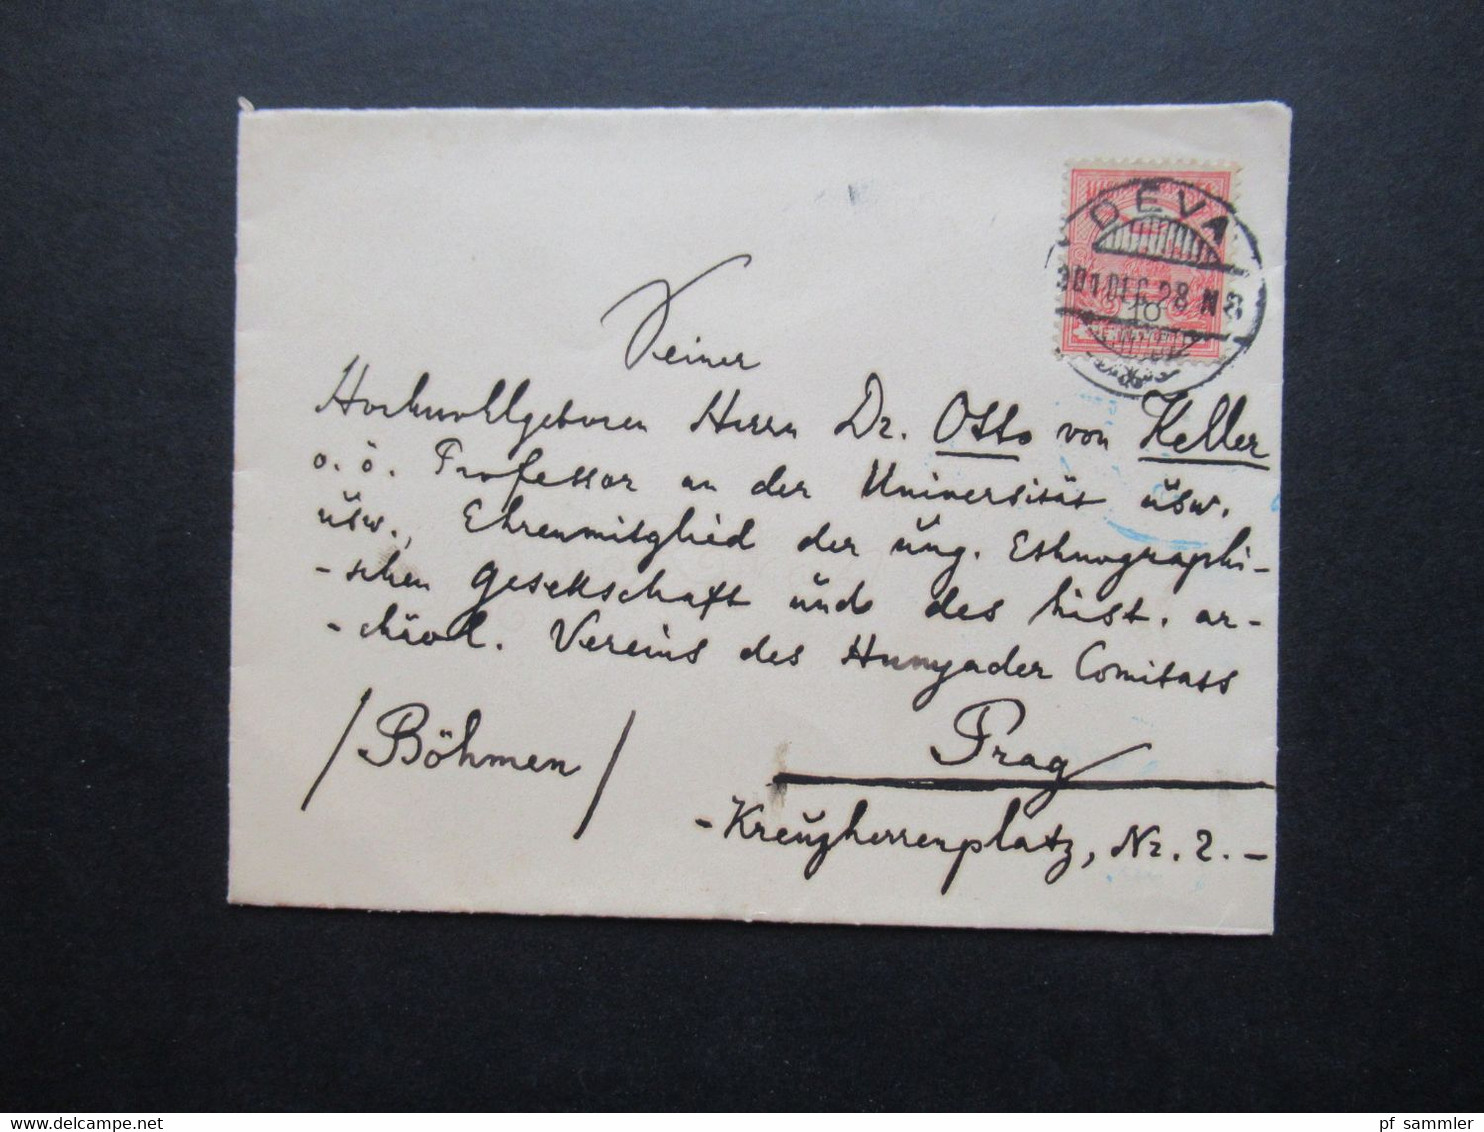 DÉVA
901 DEC 28 N8
10
Seiner
Hochwollgeboren Herrn Dr. Otto von Keller
o. ö. Professor an der Universität üsw.
üsw., Ehrenmitglied der üng. Ethnographi-
-schen Gesellschaft ünd des hist. ar-
-chäol. Vereins des Hunyader Comitats
/Böhmen/
Prag
-Kreuzherrenplatz, Nr. 2.-
www.delcampe.net
pf_sammler